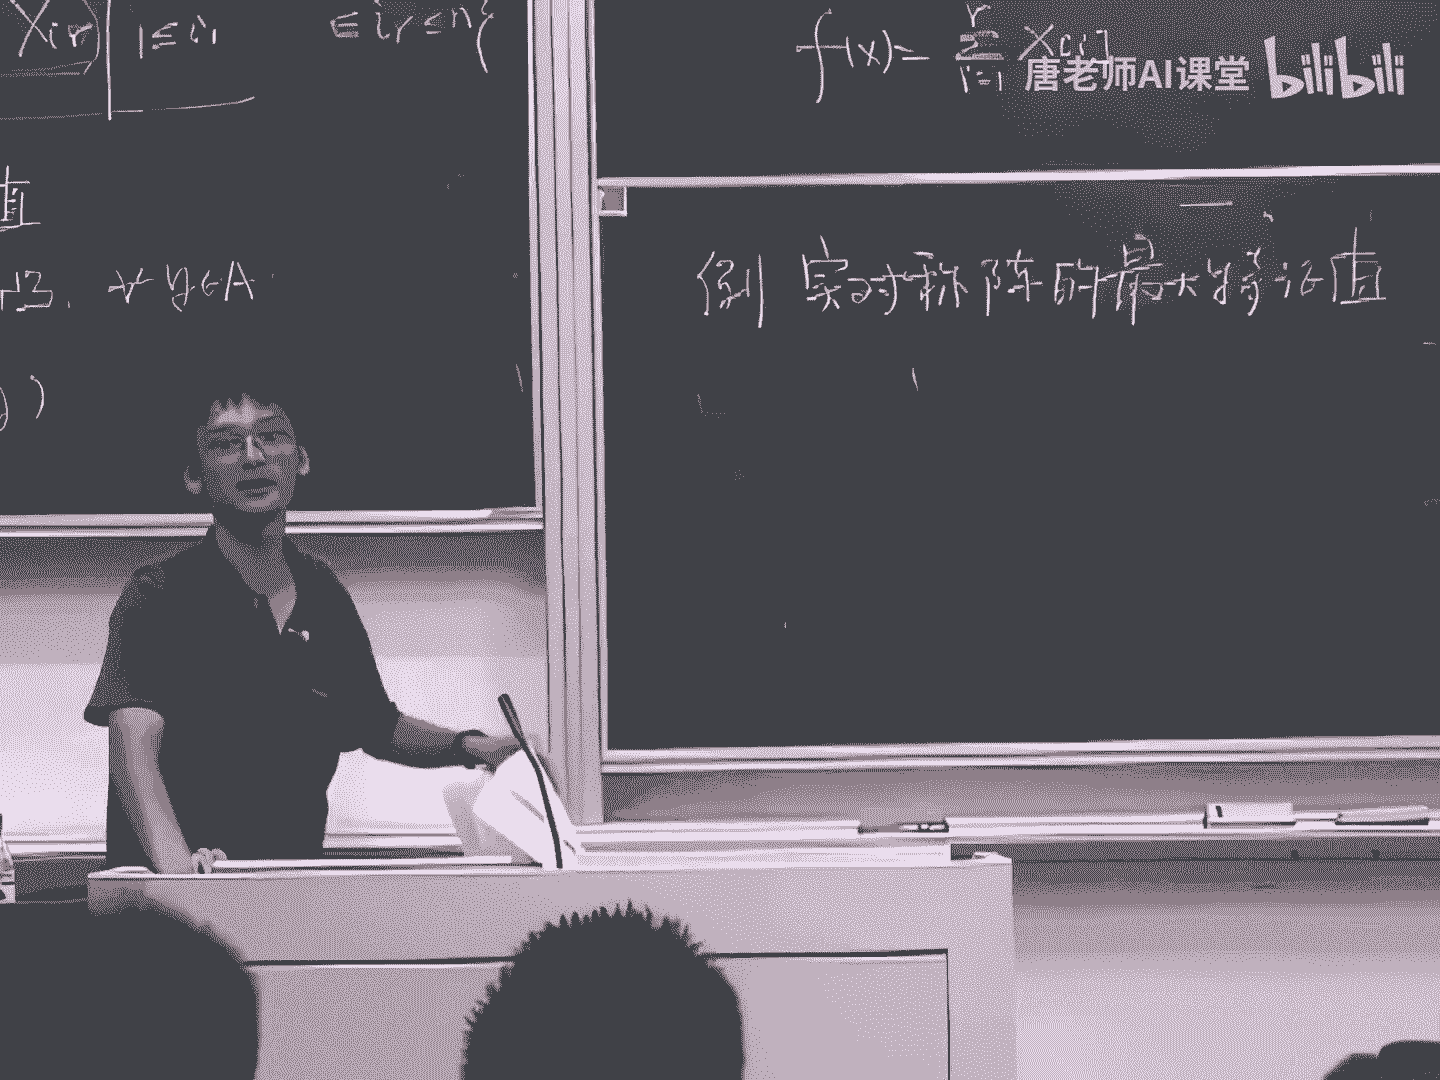 Xir) | 1≤i1 ≤ir≤n}
值
∀y∈A
y)
f(x)= ∑ r i=1 X[i]
唐老师AI课堂 bilibili
例 实对称阵的最大特征值